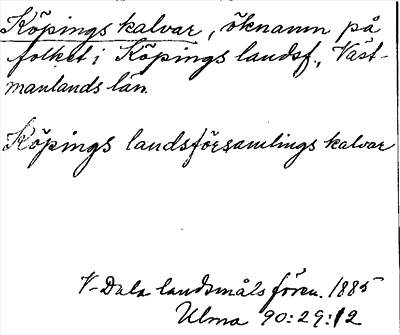 Köpings kalvar, öknamn på
folket i Köpings landsf., Väst-
manlands län.
Köpings landsförsamlings kalvar
V-Dala landsmåls fören. 1885
Ulma 90:29:12